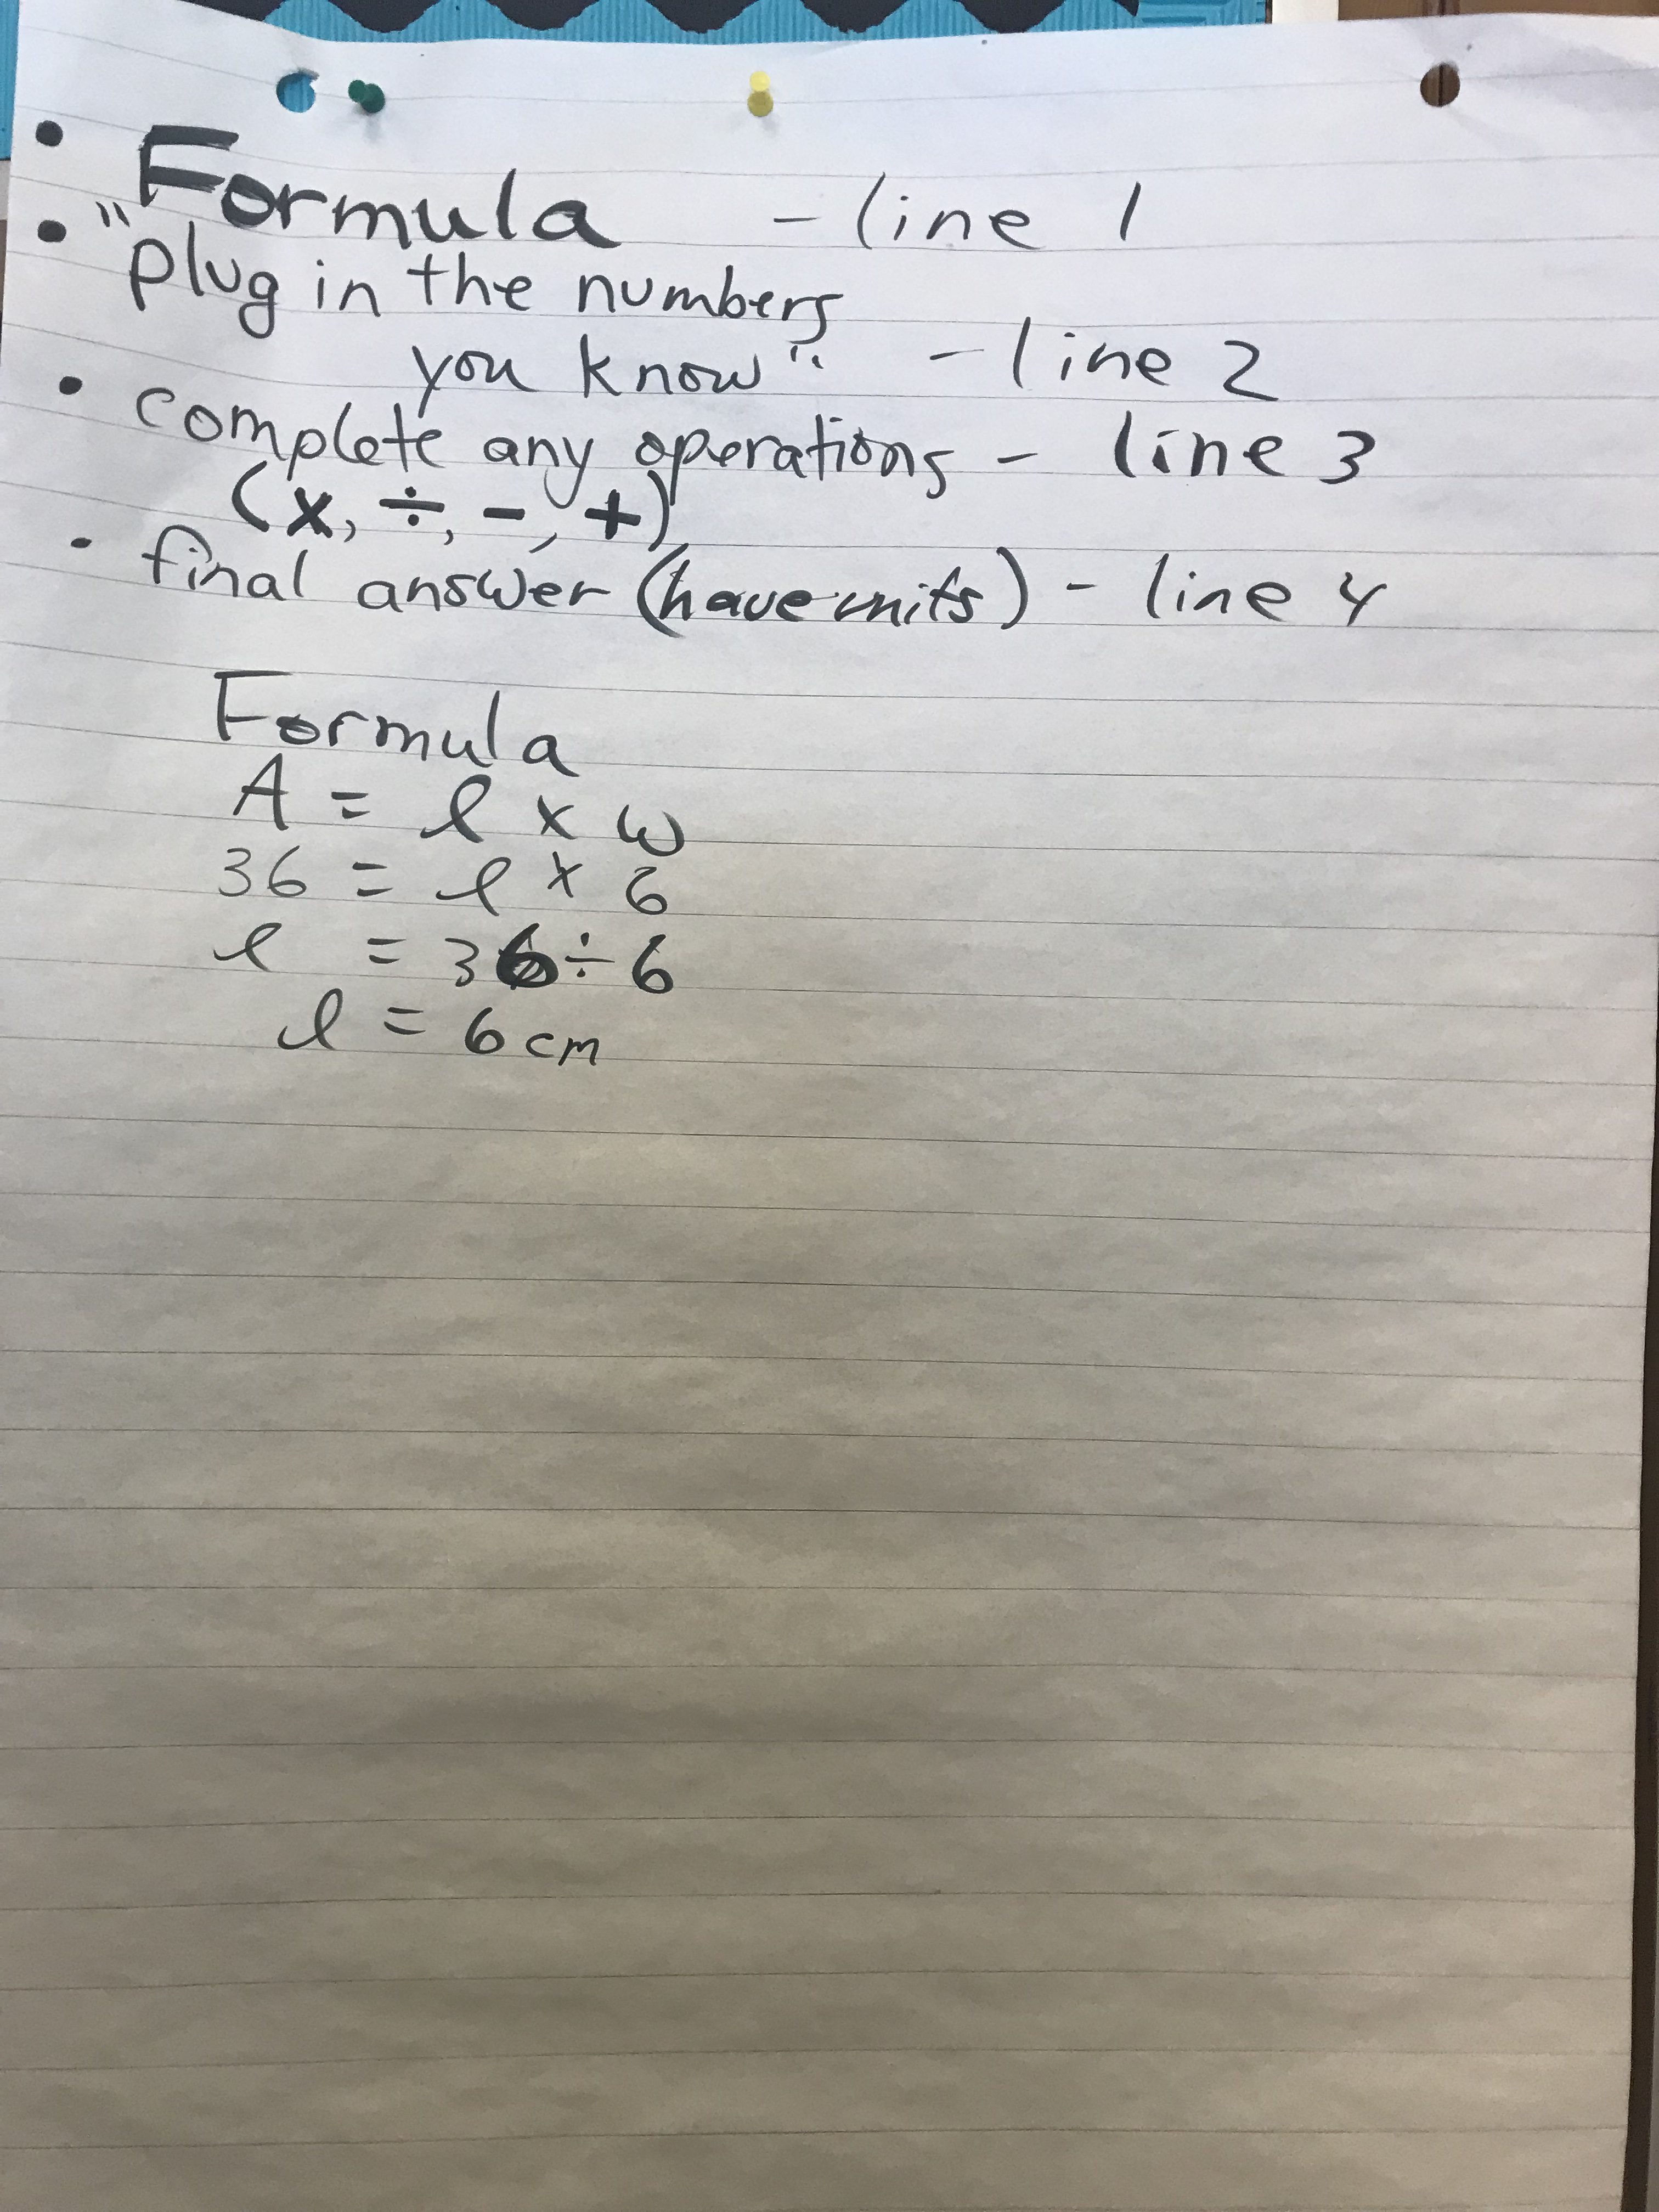 • Formula - line 1
• "plug in the numbers
you know" - line 2
• complete any operations - line 3
(x, ÷, -, +)
• final answer (have units) - line 4
Formula
A = l x w
36 = l x 6
l = 36 ÷ 6
l = 6 cm